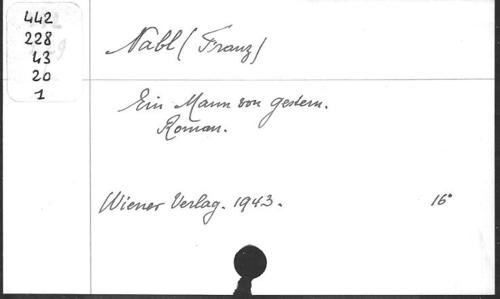 442
228
43
20
1
Nabl (Franz)
Ein Mann von gestern.
Roman.
Wiener Verlag. 1943. 16°